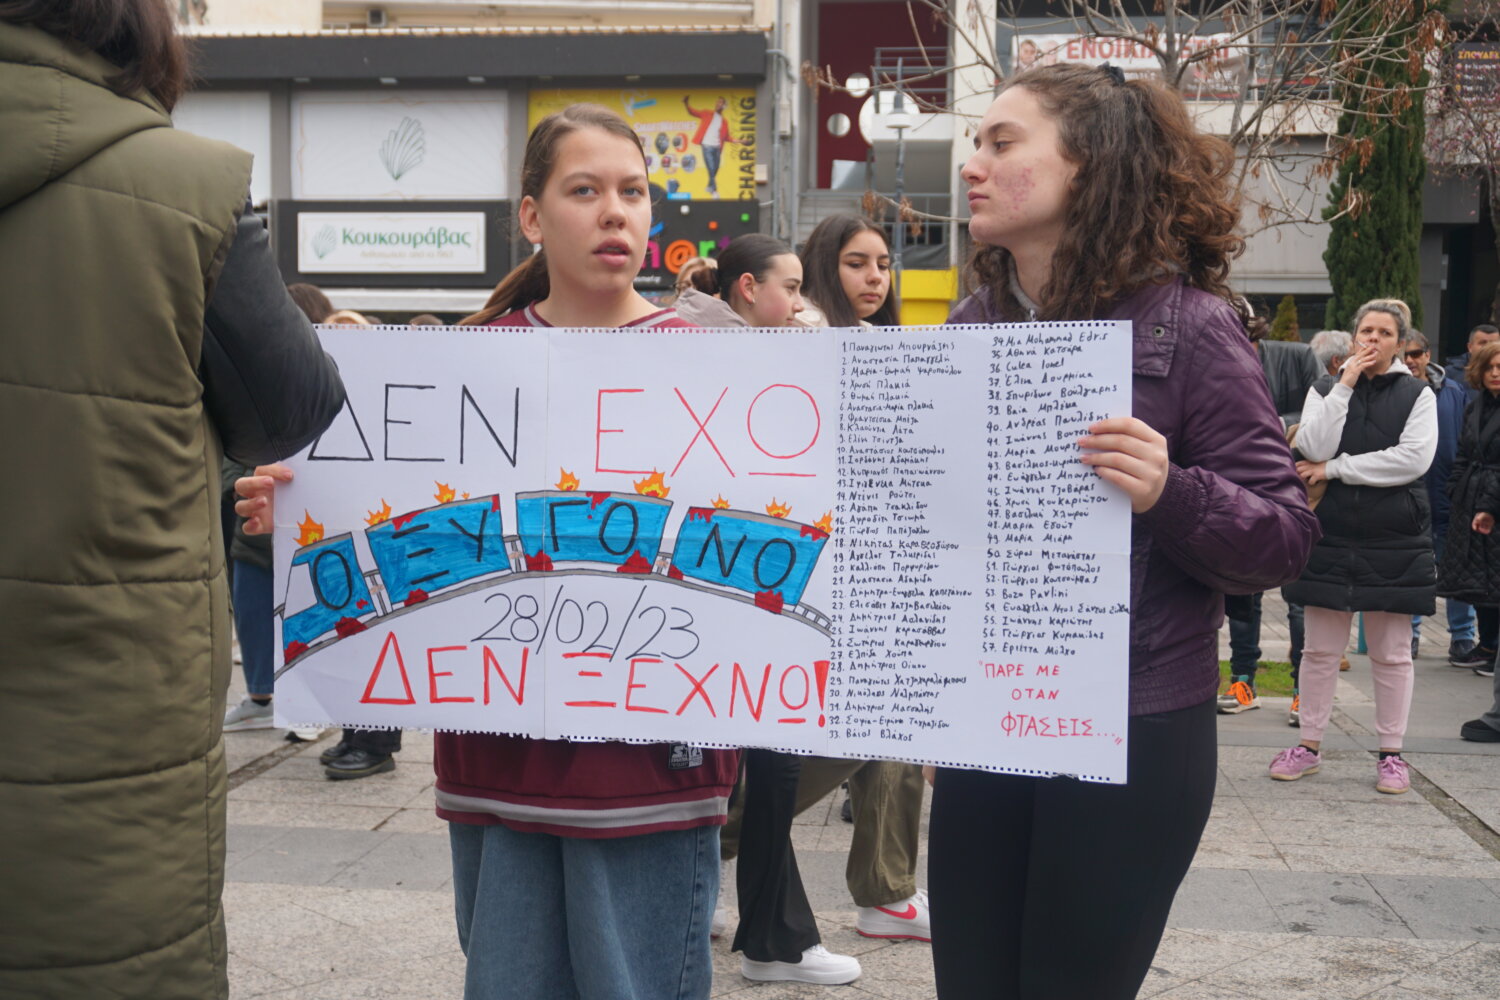 ΕΝΟΙΚΙΑΖΕΤΑΙ
ΣΠΟΥΔΕΣ
CHARGING
Κουκουράβας
m@rt
ΔΕΝ ΕΧΩ
ΟΞΥΓΟΝΟ
28/02/23
ΔΕΝ ΞΕΧΝΩ!
1 Παναγιώτης Μπουρνάζης
2. Αναστασία Παπαγγελή
3. Μαρία-Θωμαή Ψαροπούλου
4. Χρυσή Πλακιά
5. Θωμαή Πλακιά
6 Αναστασία-Μαρία Πλακιά
7. Φραντσέσκα Μπέζα
8. Κλαούντια Λάτα
9. Ελένη Τσίντζα
10. Αναστάσιος Κουτσόπουλος
11. Ιορδάνης Αδαμάκης
12. Κυπριανός Παπαϊωάννου
13. Ιφιγένεια Μήτσκα
14. Ντένις Ρούτσι
15. Αγάπη Τσακλίδου
16. Αφροδίτη Τσιωμά
17. Γιώργος Παπάζογλου
18. Νικήτας Καραθεοδώρου
19. Άγγελος Τηλκερίδης
20. Καλλιόπη Πορφυρίδου
21. Αναστασία Αδαμίδη
22. Δήμητρα-Ευαγγελία Καπετάνιου
23. Ελισάβετ Χατζηβασιλείου
24. Δημήτριος Ασλανίδης
25. Ιωάννης Καρασάββας
26. Σωτήριος Καραγεωργίου
27. Ελπίδα Χούπα
28. Δημήτριος Οίκου
29. Παναγιώτης Χατζηχαραλάμπους
30. Νικόλαος Ναλμπάντης
31. Δημήτριος Μασσαλής
32. Σοφία-Ειρήνη Ταχμαζίδου
33. Βάιος Βλάχος
34. Mia Mohammad Edris
35. Αθηνά Κατσάρα
36 Culea Ionel
37. Έλενα Δουρμίκα
38. Σπυρίδων Βούλγαρης
39. Βαΐα Μπλέκα
40. Ανδρέας Παυλίδης
41. Ιωάννης
42. Μαρία
43. Βασίλειος
44. Ευάγγελος
45. Ιωάννης Τζοβάρας
46. Χρυσή Κουκαριώτου
47. Βασιλική Χλωρού
48. Μαρία Εγούτ
49. Μαρία Μιάρη
50. Σύρος Μετανάστης
51. Γεώργιος Φωτόπουλος
52. Γεώργιος Κουτσούμπας
53. Bozo Pavlini
54.
55. Ιωάννης Καριώτης
56. Γεώργιος Κυριακίδης
57. Εριέττα Μόλχο
"ΠΑΡΕ ΜΕ
ΟΤΑΝ
ΦΤΑΣΕΙΣ..."